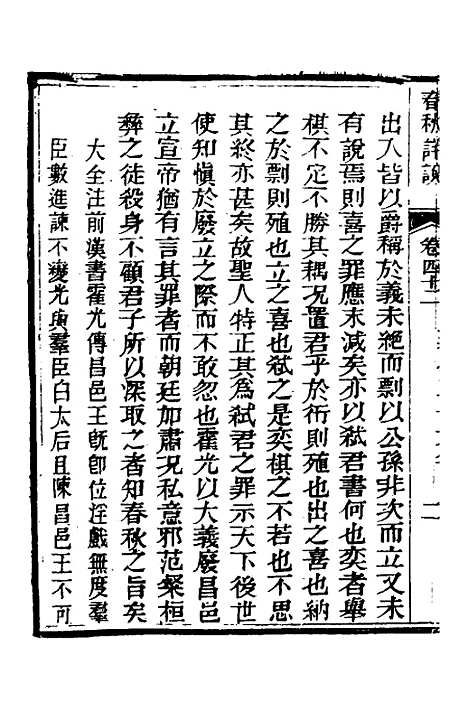 春秋詳說
卷四十二
二
出入皆以爵稱於義未絕而剽以公孫非次而立又未
有說焉則喜之罪應末減矣亦以弒君書何也奕者舉
棋不定不勝其耦况置君乎於衎則殖也出之喜也納
之於剽則殖也立之喜也弒之是奕棋之不若也不思
其終亦甚矣故聖人特正其爲弒君之罪示天下後世
使知愼於廢立之際而不敢忽也霍光以大義廢昌邑
立宣帝猶有言其罪者而朝廷加肅况私意邪范粲桓
彝之徒殺身不顧君子所以深取之者知春秋之旨矣
大全注前漢書霍光傳昌邑王旣卽位淫戲無度羣
臣數進諫不變光與羣臣白太后且陳昌邑王不可